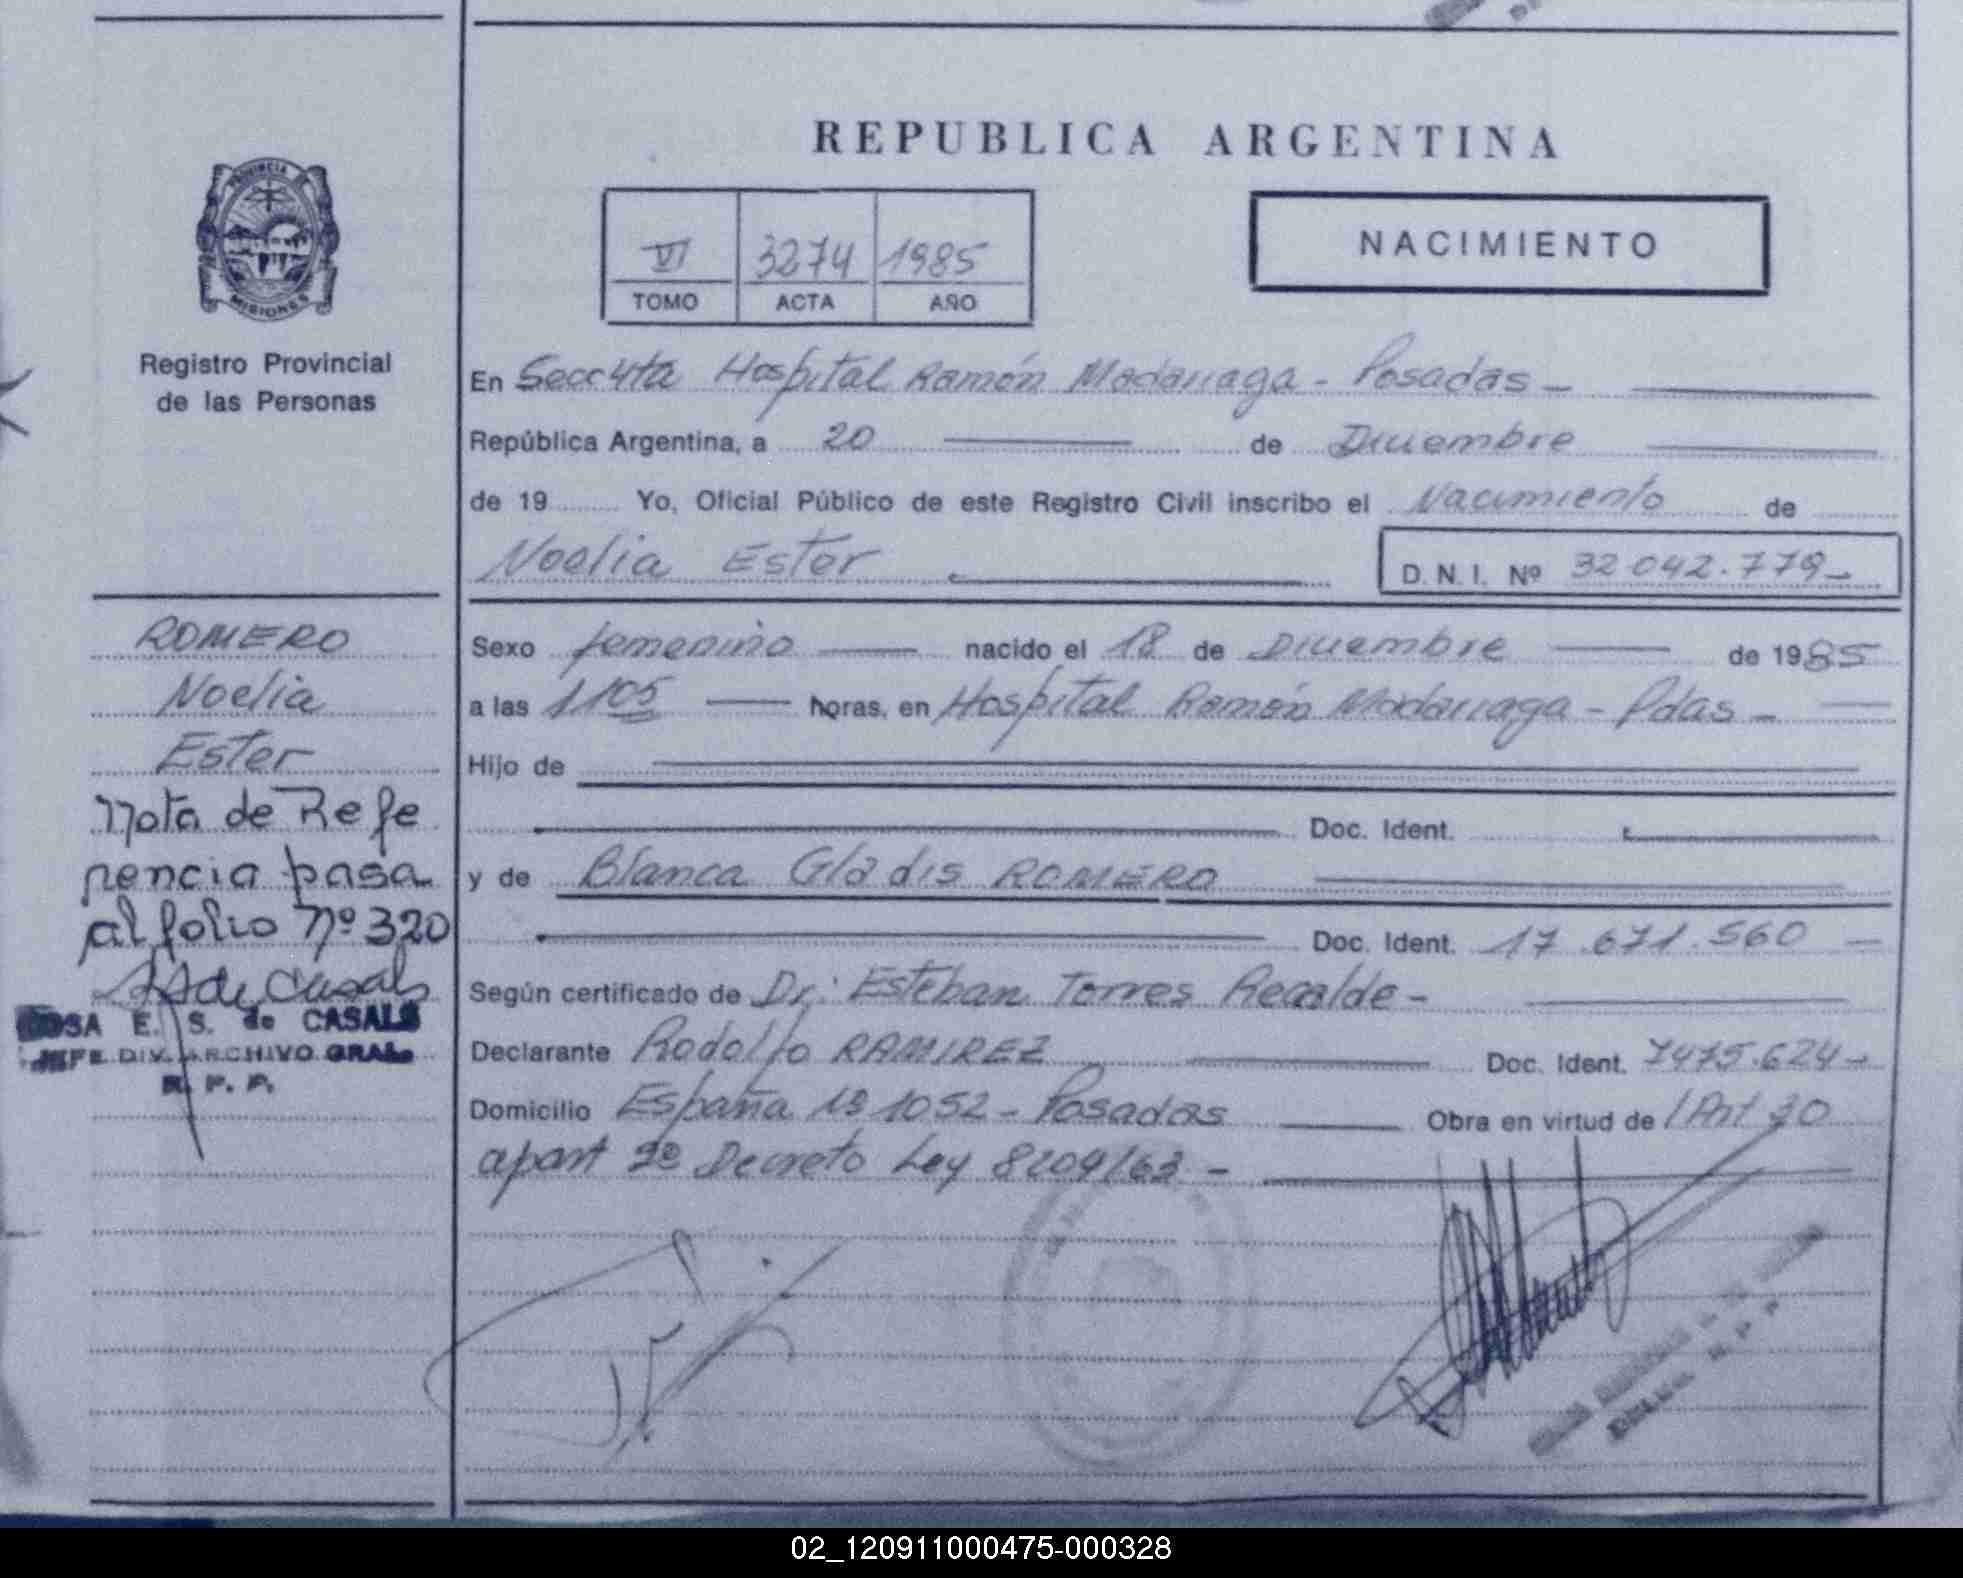 REPUBLICA ARGENTINA
PROVINCIA DE
MISIONES
Registro Provincial
de las Personas
VI 3274 1985
TOMO ACTA AÑO
NACIMIENTO
En Secc 4ta Hospital Ramón Madariaga - Posadas -
República Argentina, a 20 de Diciembre
de 19 Yo, Oficial Público de este Registro Civil inscribo el Nacimiento de
Noelia Ester
D. N. I. Nº 32.042.779 -
ROMERO
Noelia
Ester
Nota de Refe
rencia pasa
al folio Nº 320
S de Casals
ROSA E. S. de CASALS
JEFE DIV. ARCHIVO GRAL.
R. P. P.
Sexo femenino nacido el 18 de Diciembre de 1985
a las 1105 horas, en Hospital Ramón Madariaga - Pdas -
Hijo de
Doc. Ident.
y de Blanca Gladis ROMERO
Doc. Ident. 17.671.560 -
Según certificado de Dr: Esteban Torres Recalde -
Declarante Rodolfo RAMIREZ Doc. Ident. 7475.624 -
Domicilio España Nº 1052 - Posadas Obra en virtud de /Art 30
apart 2º Decreto Ley 8204/63 -
02_120911000475-000328